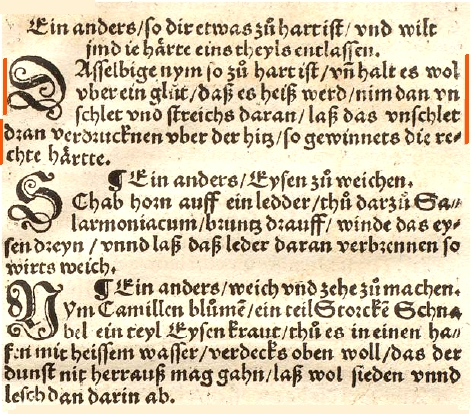 Ein anders/so dir etwas zů hart ist/ vnd wilt
jmd ie härte eins theyls entlassen.
DAsselbige nym so zů hart ist/ vñ halt es wol
vber ein glůt/ daß es heiß werd/ nim dan vn
schlet vnd streichs daran/ laß das vnschlet
dran verdrucknen vber der hitz/ so gewinnets die re-
chte härtte.
¶ Ein anders/ Eysen zů weichen.
SChab horn auff ein ledder/ thů darzů Sa-
larmoniacum/ bruntz drauff/ winde das ey-
sen dreyn/ vnnd laß daß leder daran verbrennen so
wirts weich.
¶ Ein anders/ weich vnd zehe zů machen.
NYm Camillen blůmẽ/ ein teil Storckẽ Schna-
bel ein teyl Eysen kraut/ thů es in einen ha-
fen mit heissem wasser/ verdecks oben woll/ das der
dunst nit herrauß mag gahn/ laß wol sieden vnnd
lesch dan darin ab.